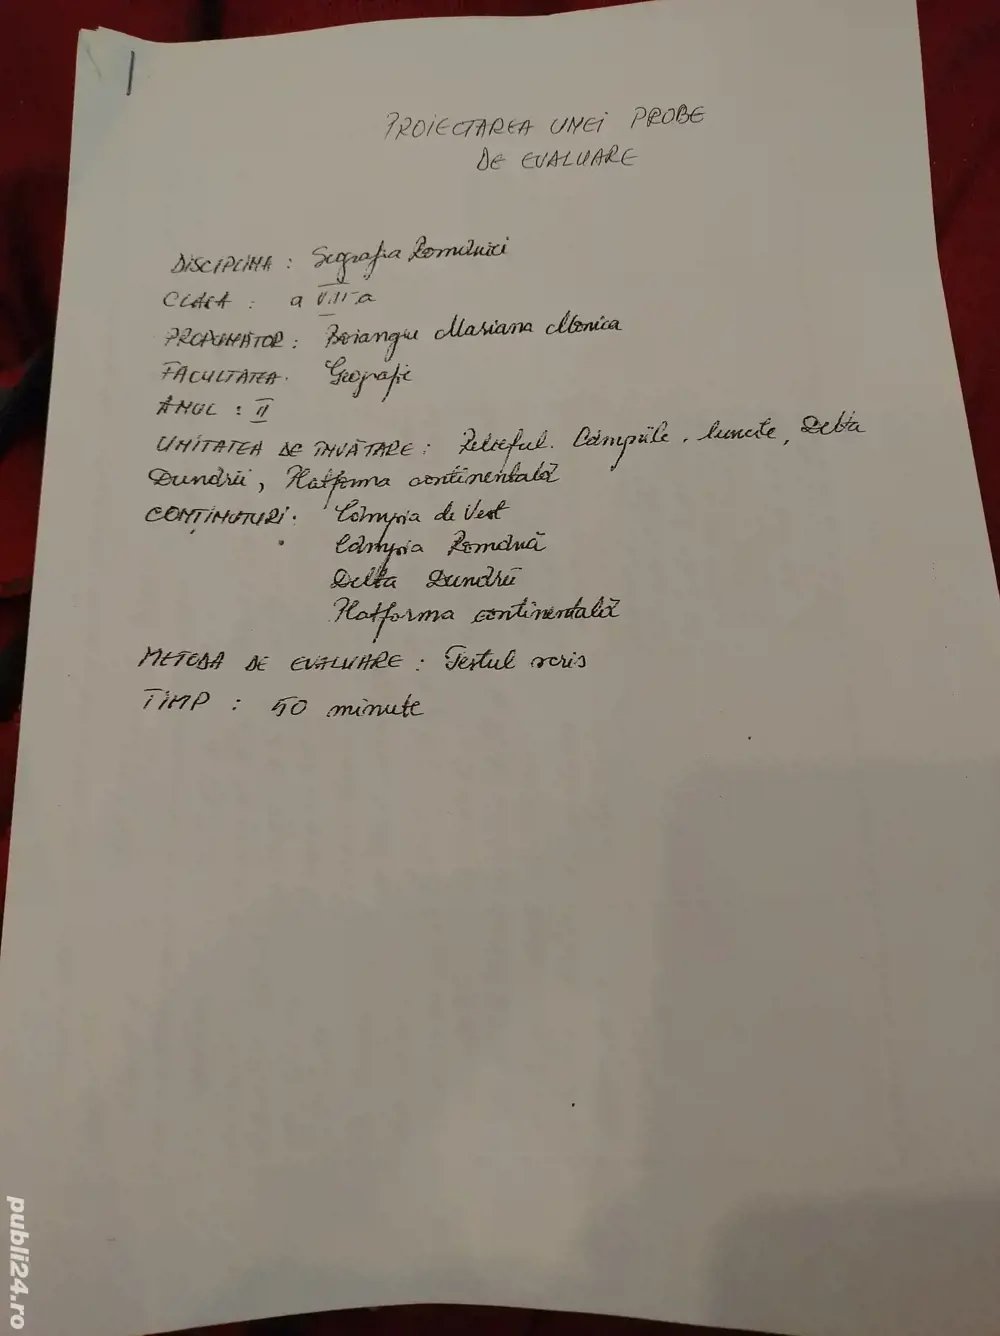 PROIECTAREA UNEI PROBE
DE EVALUARE
DISCIPLINA : Geografia României
CLASA : a VIII-a
PROPUNĂTOR : Boiangiu Mariana Monica
FACULTATEA. Geografie
ANUL : II
UNITATEA DE ÎNVĂTARE : Relieful. Câmpiile, luncile, Delta
Dunării, Platforma continentală
CONȚINUTURI. Câmpia de Vest
Câmpia Română
Delta Dunării
Platforma continentală
METODA DE EVALUARE : Testul scris
TIMP : 50 minute
publi24.ro